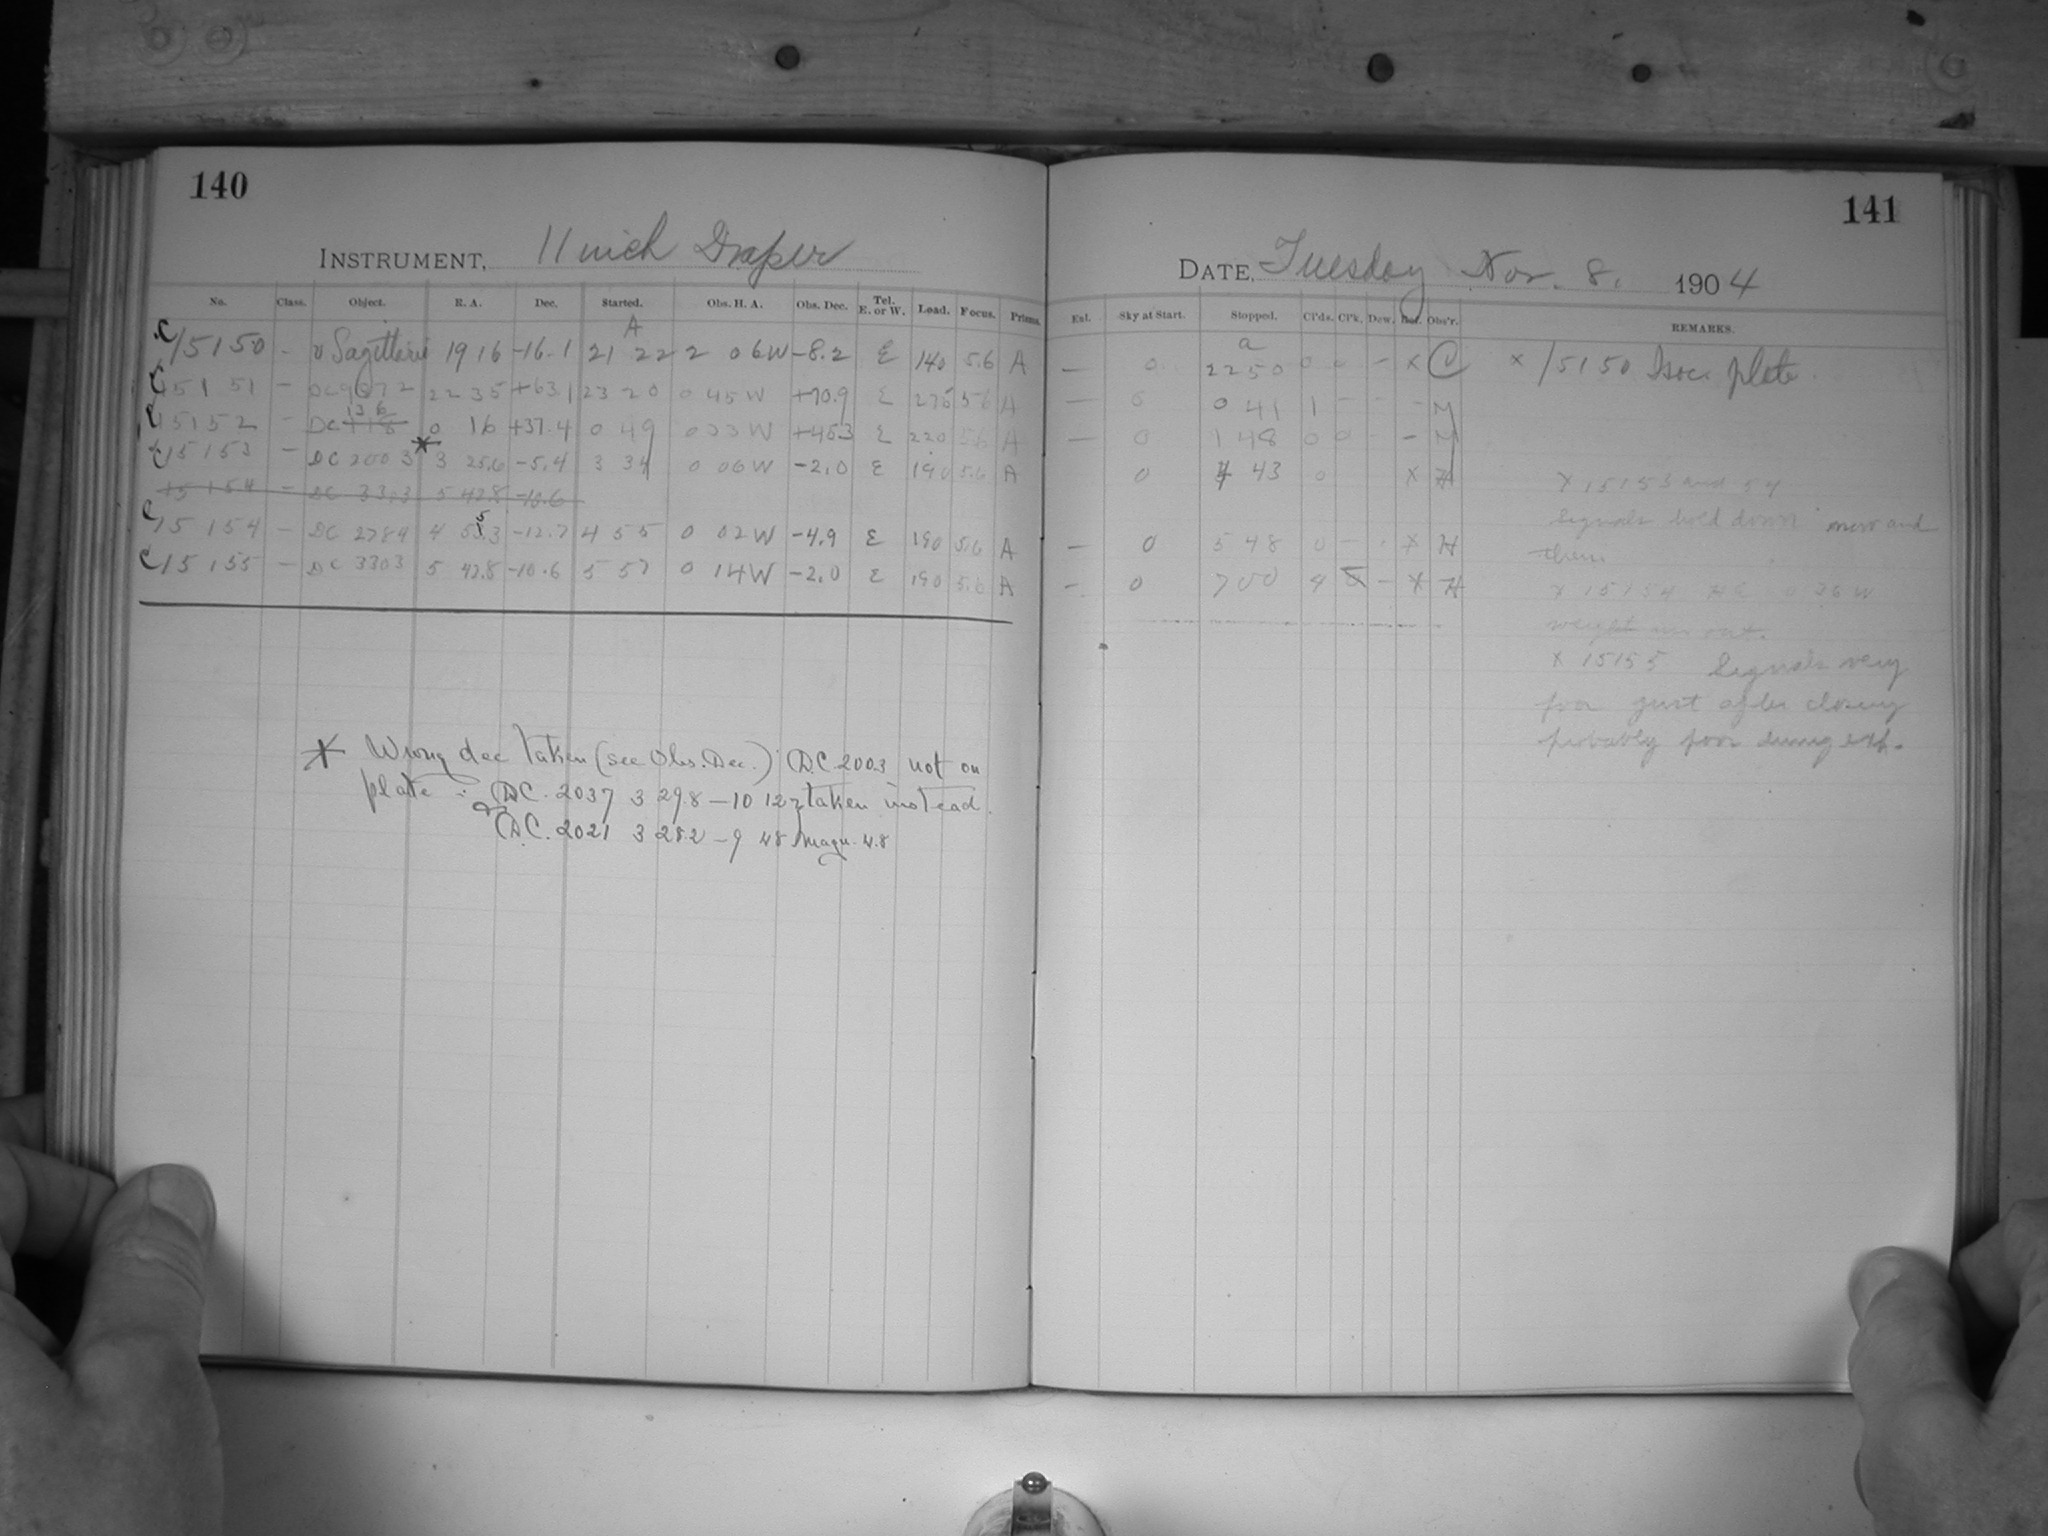 140
INSTRUMENT, 11 inch Draper
No. Class. Object. R. A. Dec. Started. Obs. H. A. Obs. Dec. Tel. E. or W. Load. Focus. Prisms.
A
C 15150 - υ Sagittarii 19 16 -16.1 21 22 2 06 W -8.2 E 140 5.6 A
C 15151 - DC 9672 22 35 +63.1 23 20 0 45 W +70.9 E 275 5.6 A
136
C 15152 - DC 0 16 +37.4 0 49 0 33 W +45.3 E 220 5.6 A
C 15153 - DC 2003 * 3 25.6 -5.4 3 34 0 06 W -2.0 E 190 5.6 A
15154 - DC 3303 5 42.8 -10.6
C 15154 - DC 2784 4 53.3 -12.7 4 55 0 02 W -4.9 E 190 5.6 A
C 15155 - DC 3303 5 42.8 -10.6 5 57 0 14 W -2.0 E 190 5.6 A
* Wrong dec taken (see Obs. Dec.) D.C. 2003 not on
plate ∴ D.C. 2037 3 29.8 -10 12 taken instead.
or D.C. 2021 3 28.2 -9 48 Magn. 4.8
141
DATE, Tuesday Nov. 8. 1904
Ext. Sky at Start. Stopped. Cl'ds. Cl'k. Dew. Obs'r. REMARKS.
a
- 0 22 50 0 0 - x C x 15150 Isoc. plate.
- 0 0 41 1 - - - M
- 0 1 48 0 0 - - M
0 4 43 0 x H x 15153 and 54
signals held down now and
- 0 5 48 0 - . x H then
- 0 7 00 4 5 - x H x 15154 HA 0 36 W
weight ran out.
x 15155 Signals very
poor just after closing
probably poor during exp.